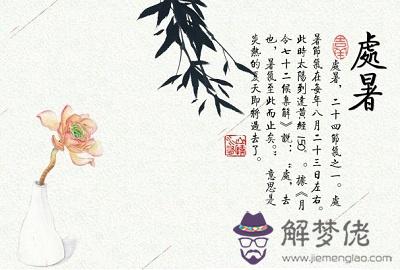 處暑
處暑，二十四節氣之一。處
暑節氣在每年八月二十三日左右。
此時太陽到達黃經150°。據《月
令七十二候集解》說：“處，去
也，暑氣至此而止矣。”意思是
炎熱的夏天即將過去了。
解梦佬
www.jiemenglao.com